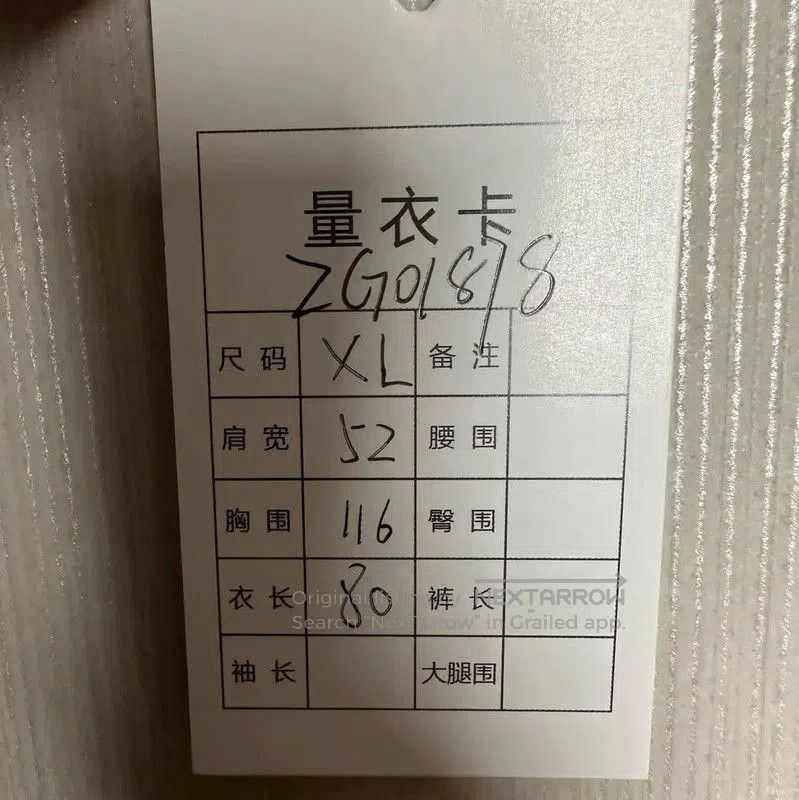 量衣卡
ZG01878
尺码 XL 备注
肩宽 52 腰围
胸围 116 臀围
衣长 80 裤长
NEXTARROW
Search "NexTarrow" in Grailed app.
袖长 大腿围